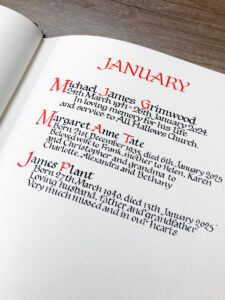 JANUARY
Michael James Grimwood
24th March 1971 - 26th January 2024
In loving memory for his life
and service to All Hallows Church.
Margaret Anne Tate
Born 21st December 1935, died 6th January 2025
Beloved wife to Frank, mother to Helen, Karen
and Christopher and grandma to
Charlotte, Alexandra and Bethany
James Plant
Born 27th March 1940, died 13th January 2025
Loving husband, father and grandfather
Very much missed and in our hearts